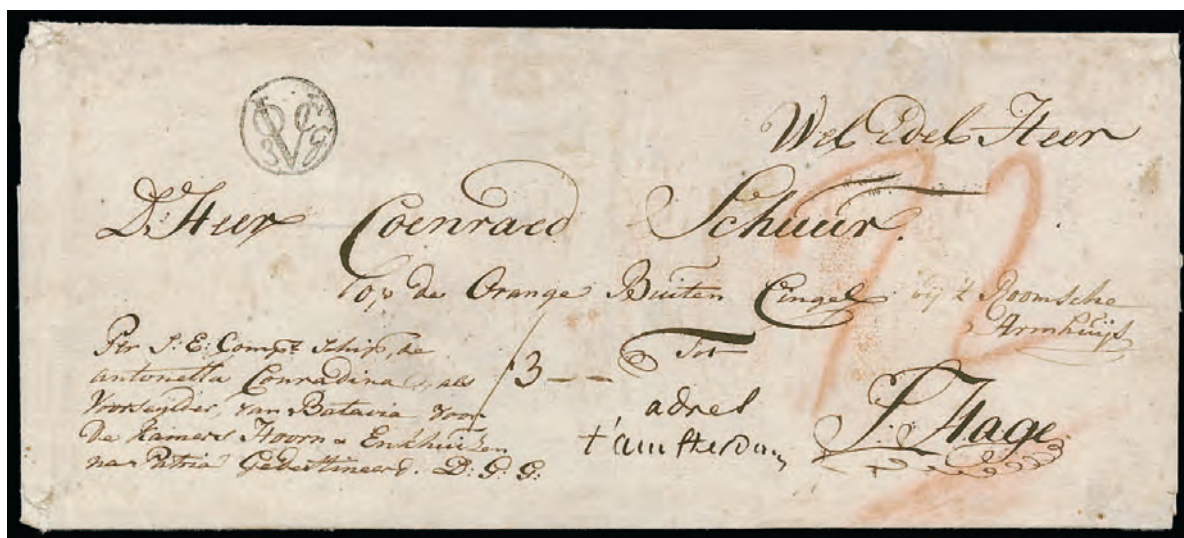 VOC
3 G
Wel Edel Heer
D. Heer Coenraed Schuur.
Op de Orange Buiten Cingel bij 't Roomsche
Armhuijs
Tot
S. Hage
Per I: E: Comps. Schip, de
Antonetta Conradina, als
Voorseylder, van Batavia voor
de Kamers Hoorn & Enkhuizen
na Patria Gedestineerd. D: G: G:
3 - -
adres
t'amsterdam
72